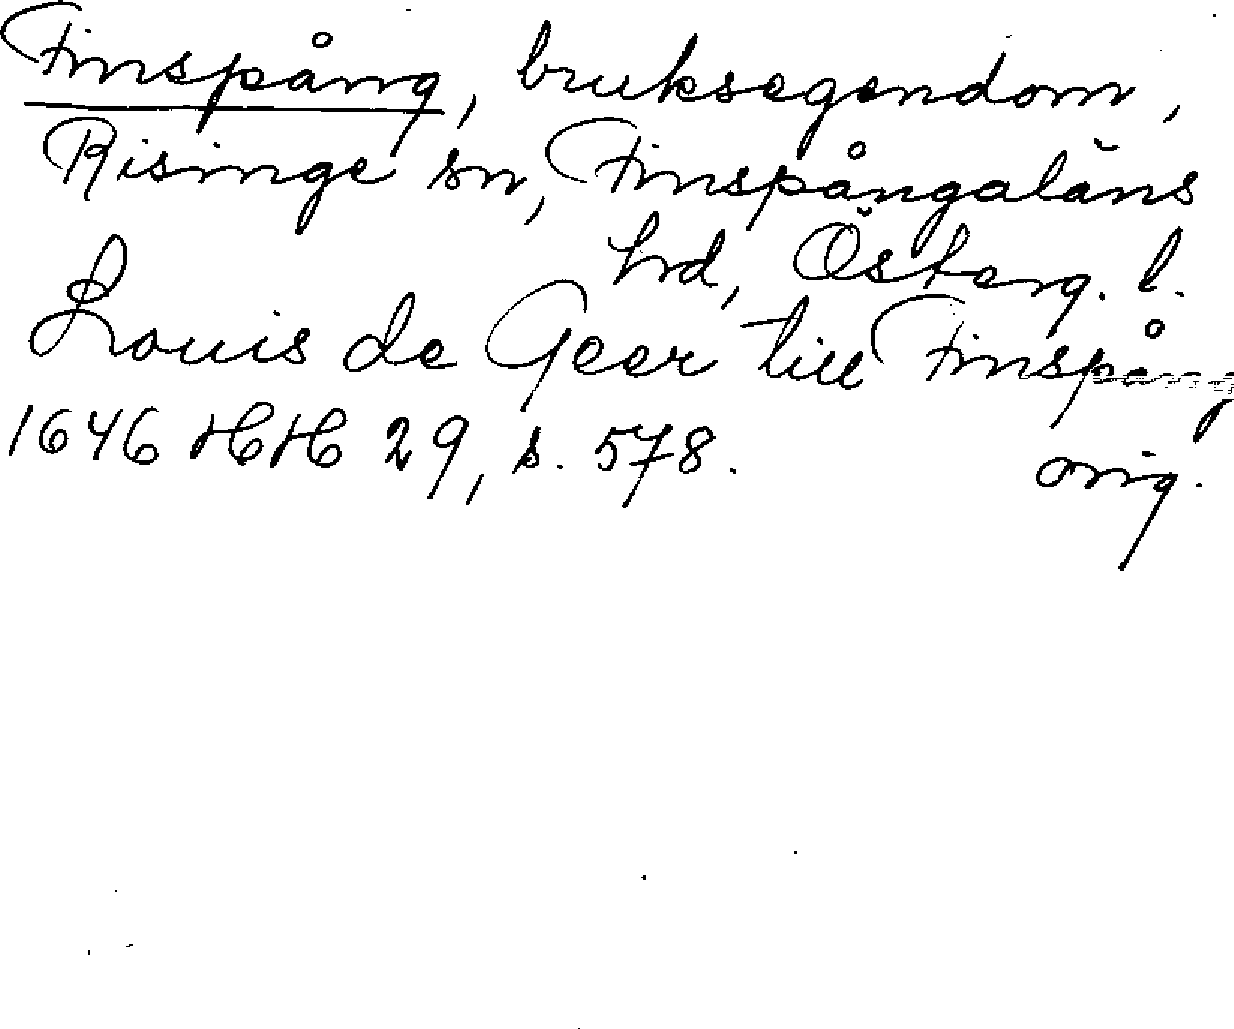 Finspång, bruksegendom,
Risinge sn, Finspångaläns
hrd, Österg. l.
Louis de Geer till Finspång
1646 HH 29, s. 578.
orig.